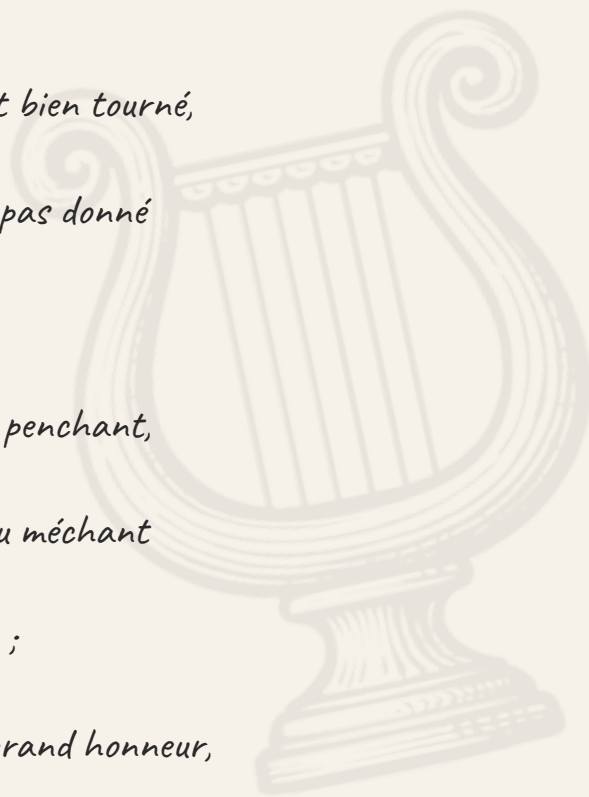 t bien tourné,
pas donné
penchant,
u méchant
;
rand honneur,